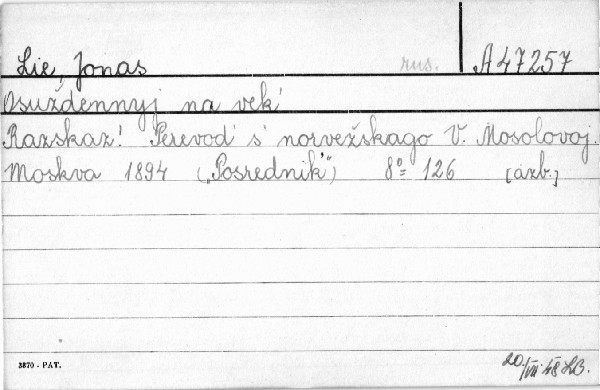 Lie, Jonas rus. A 47257
Osuždennyj na vek'
Razskaz! Perevod' s' norvežskago V. Mosolovoj.
Moskva 1894 („Posrednik'“) 8° 126 [azb.]
3870 - PAT.
20/VII 48 LB.